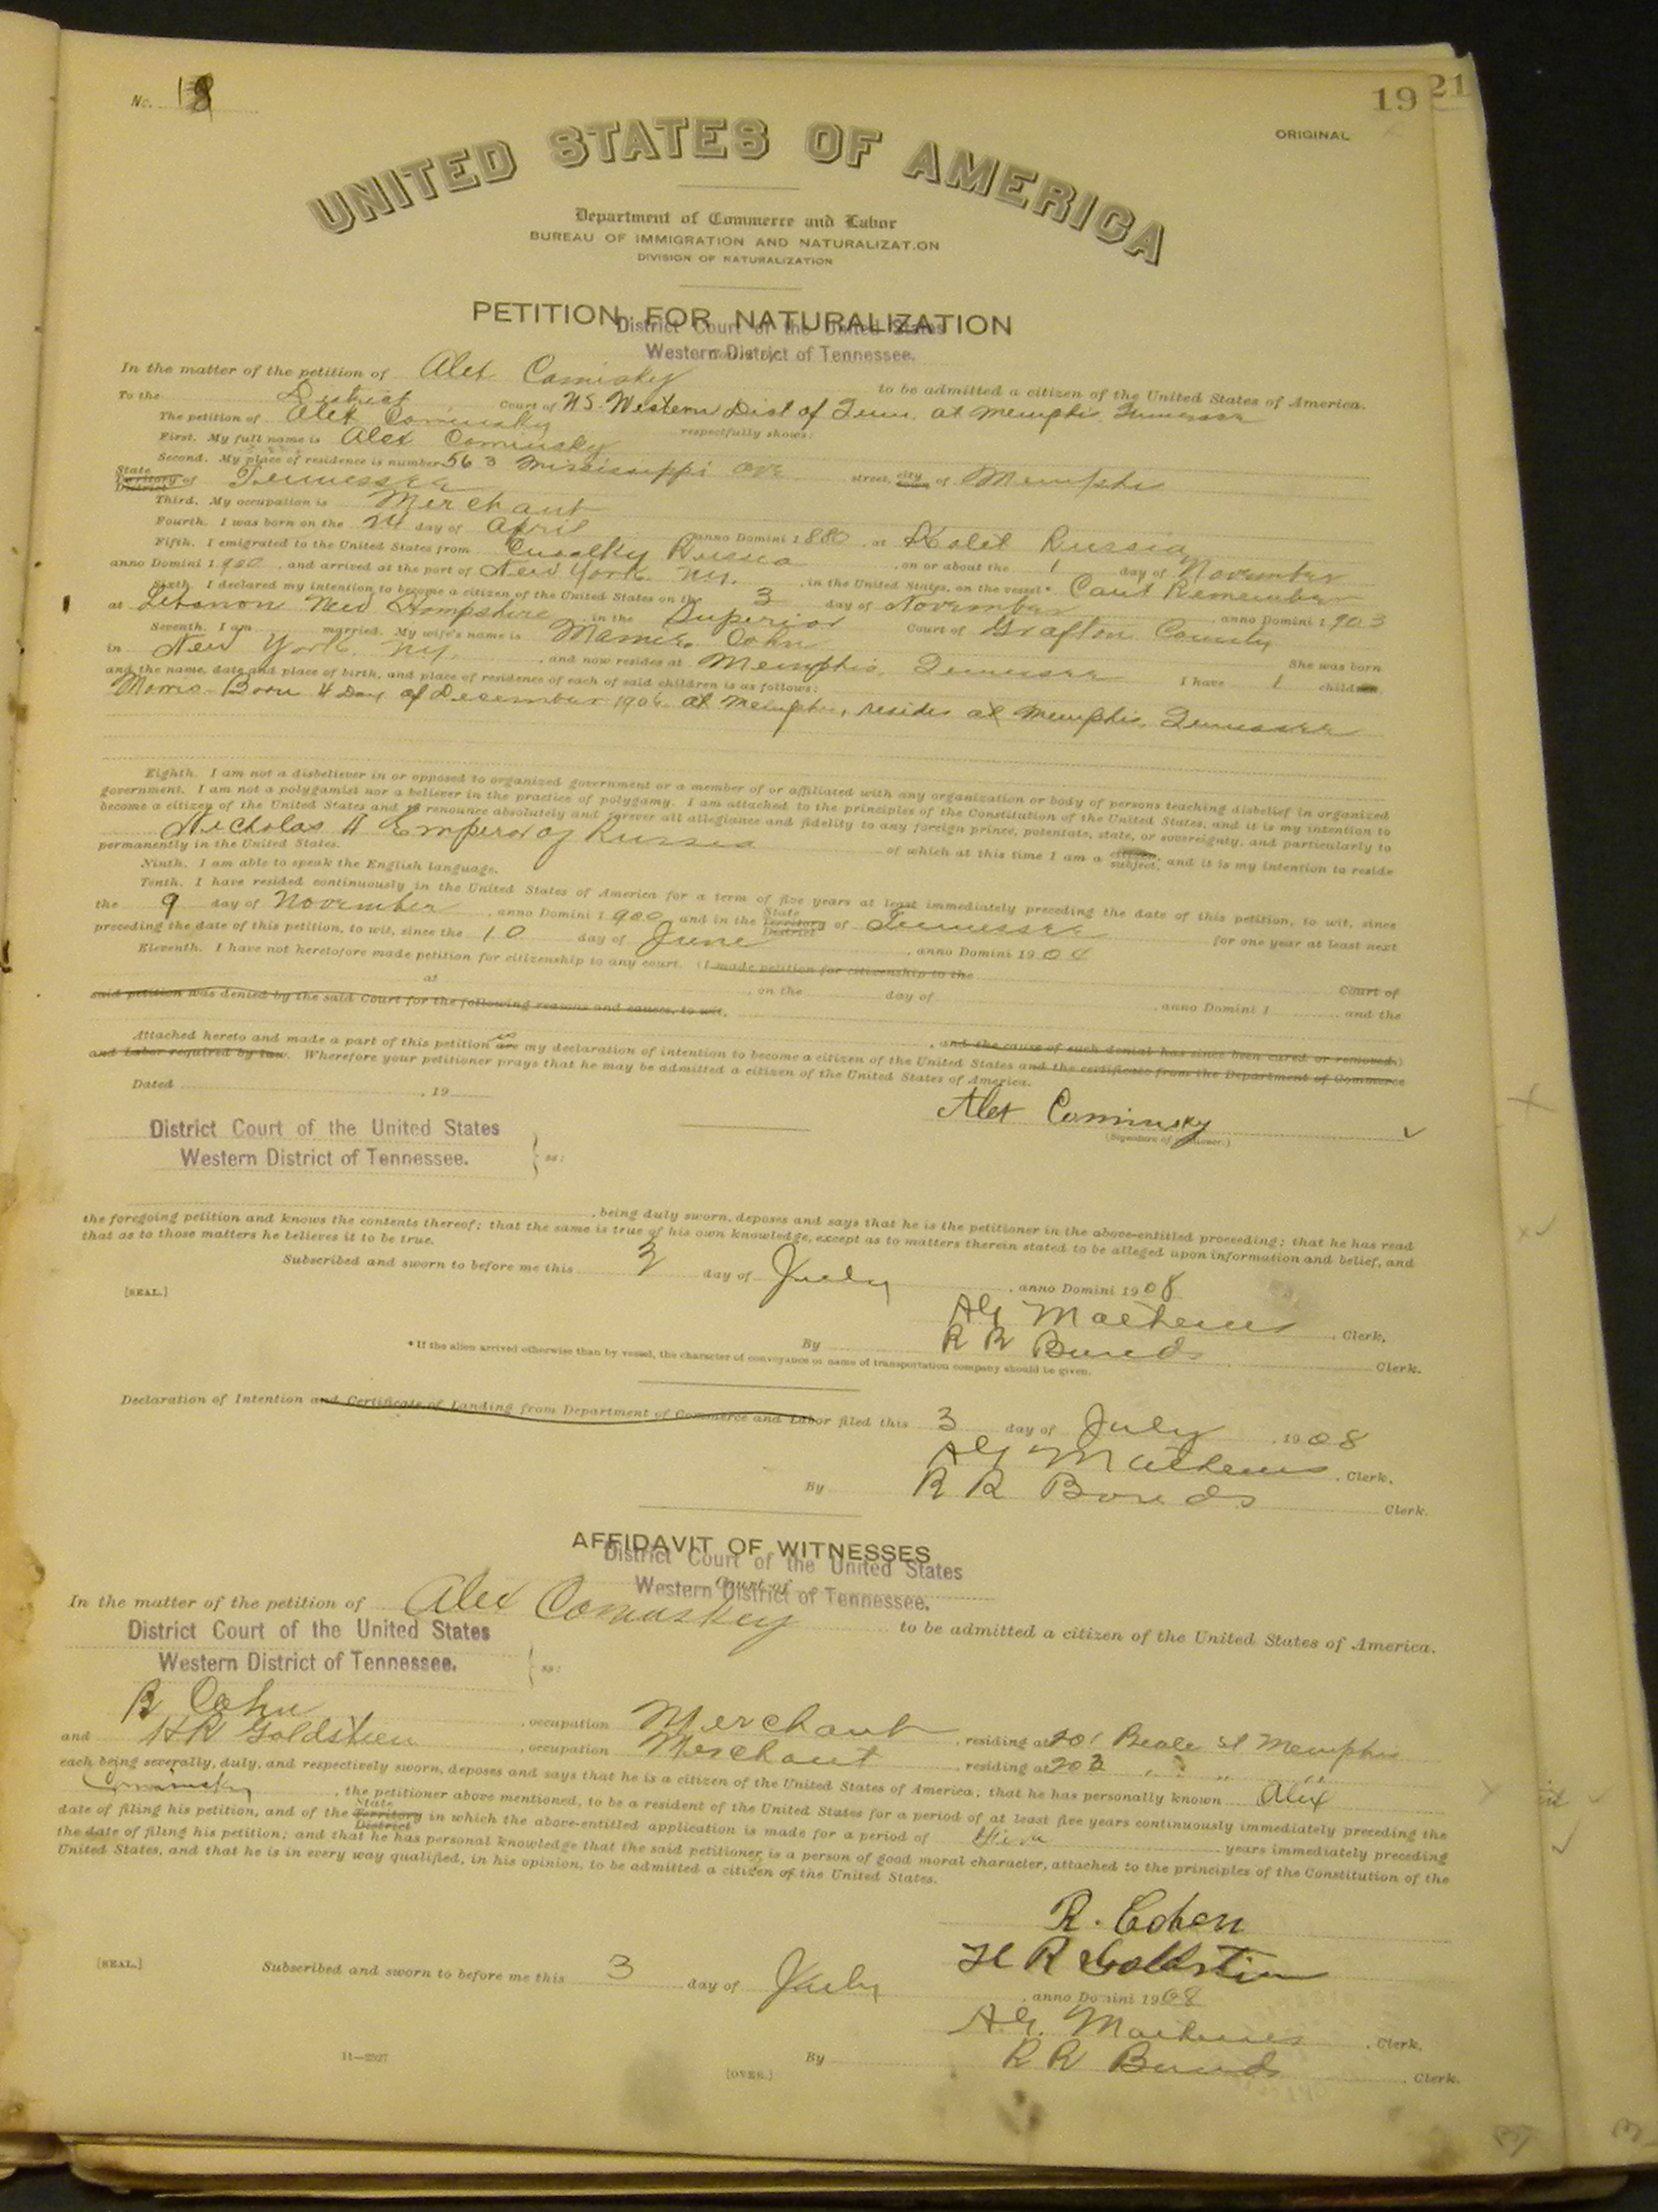 19 21
No. 19
ORIGINAL
UNITED STATES OF AMERICA
Department of Commerce and Labor
BUREAU OF IMMIGRATION AND NATURALIZATION
DIVISION OF NATURALIZATION
PETITION FOR NATURALIZATION
District Court of the United States
Western District of Tennessee.
In the matter of the petition of Alex Comisky to be admitted a citizen of the United States of America.
To the District Court of U.S. Western Dist of Tenn. at Memphis Tennessee
The petition of Alex Cominsky respectfully shows:
First. My full name is Alex Cominsky
Second. My place of residence is number 563 Mississippi ave street, city of Memphis
State Territory District of Tennessee
Third. My occupation is Merchant
Fourth. I was born on the 24 day of April anno Domini 1880, at Russia
Fifth. I emigrated to the United States from Russia, on or about the 1 day of November
anno Domini 1900, and arrived at the port of New York N.Y., in the United States, on the vessel* Cant Remember
Sixth. I declared my intention to become a citizen of the United States on the 3 day of November, anno Domini 1903
at Lebanon New Hampshire in the Superior Court of Grafton County
Seventh. I am married. My wife's name is Mamie Cohn She was born
in New York N.Y., and now resides at Memphis, Tennessee I have 1 children,
and the name, date and place of birth, and place of residence of each of said children is as follows:
Morris Born 4 Day of December 1906 at Memphis, resides at Memphis, Tennessee
Eighth. I am not a disbeliever in or opposed to organized government or a member of or affiliated with any organization or body of persons teaching disbelief in organized
government. I am not a polygamist nor a believer in the practice of polygamy. I am attached to the principles of the Constitution of the United States, and it is my intention to
become a citizen of the United States and to renounce absolutely and forever all allegiance and fidelity to any foreign prince, potentate, state, or sovereignty, and particularly to
Nicholas II Emperor of Russia of which at this time I am a citizen subject, and it is my intention to reside
permanently in the United States.
Ninth. I am able to speak the English language.
Tenth. I have resided continuously in the United States of America for a term of five years at least immediately preceding the date of this petition, to wit, since
the 9 day of November, anno Domini 1900, and in the State Territory District of Tennessee for one year at least next
preceding the date of this petition, to wit, since the 10 day of June, anno Domini 1904
Eleventh. I have not heretofore made petition for citizenship to any court. (I made petition for citizenship to the Court of
at, on the day of, anno Domini 1 and the
said petition was denied by the said Court for the following reasons and causes, to wit,
, and the cause of such denial has since been cured or removed.)
Attached hereto and made a part of this petition are is my declaration of intention to become a citizen of the United States and the certificate from the Department of Commerce
and Labor required by law. Wherefore your petitioner prays that he may be admitted a citizen of the United States of America.
Dated, 19
Alex Cominsky
(Signature of petitioner.)
District Court of the United States
Western District of Tennessee. } ss:
, being duly sworn, deposes and says that he is the petitioner in the above-entitled proceeding; that he has read
the foregoing petition and knows the contents thereof; that the same is true of his own knowledge, except as to matters therein stated to be alleged upon information and belief, and
that as to those matters he believes it to be true.
Subscribed and sworn to before me this 3 day of July, anno Domini 1908
[SEAL.]
A G Mathews, Clerk.
By R R Bonds Clerk.
* If the alien arrived otherwise than by vessel, the character of conveyance or name of transportation company should be given.
Declaration of Intention and Certificate of Landing from Department of Commerce and Labor filed this 3 day of July, 1908
A G Mathews, Clerk.
By R R Bonds Clerk.
AFFIDAVIT OF WITNESSES
District Court of the United States
Court of
Western District of Tennessee.
In the matter of the petition of Alex Comuskey to be admitted a citizen of the United States of America.
District Court of the United States
Western District of Tennessee. } ss:
R Cohn, occupation Merchant, residing at 201 Beale st Memphis
and H R Goldstein, occupation Merchant, residing at 203 " " " "
each being severally, duly, and respectively sworn, deposes and says that he is a citizen of the United States of America; that he has personally known Alex
Cominsky, the petitioner above mentioned, to be a resident of the United States for a period of at least five years continuously immediately preceding the
date of filing his petition, and of the State Territory District in which the above-entitled application is made for a period of years immediately preceding
the date of filing his petition; and that he has personal knowledge that the said petitioner is a person of good moral character, attached to the principles of the Constitution of the
United States, and that he is in every way qualified, in his opinion, to be admitted a citizen of the United States.
R. Cohen
H R Goldstein
[SEAL.]
Subscribed and sworn to before me this 3 day of July, anno Domini 1908
A.G. Mathews, Clerk.
By R R Bonds, Clerk.
11—2527
[OVER.]